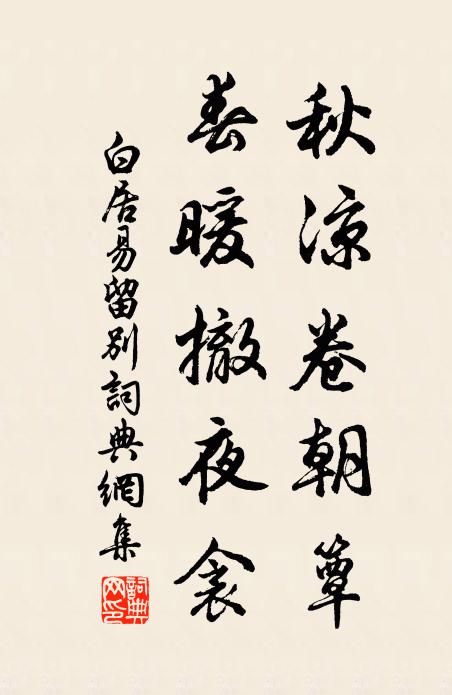 秋涼卷朝簟
春暖撤夜衾
白居易留別詞典網集
詞典网印